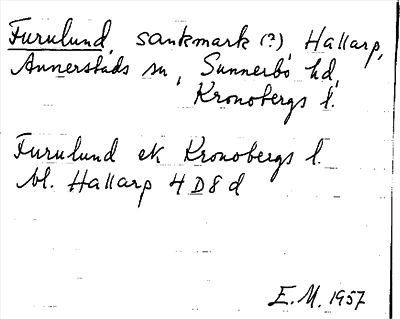 Furulund, sankmark (?), Hallarp,
Annerstads sn, Sunnerbo hd,
Kronobergs l.
Furulund ek Kronobergs l.
bl. Hallarp 4 D 8 d
E.M. 1957